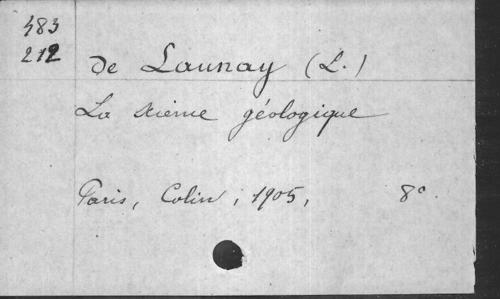 483
212
de Launay (L.)
La science géologique
Paris, Colin, 1905, 8°